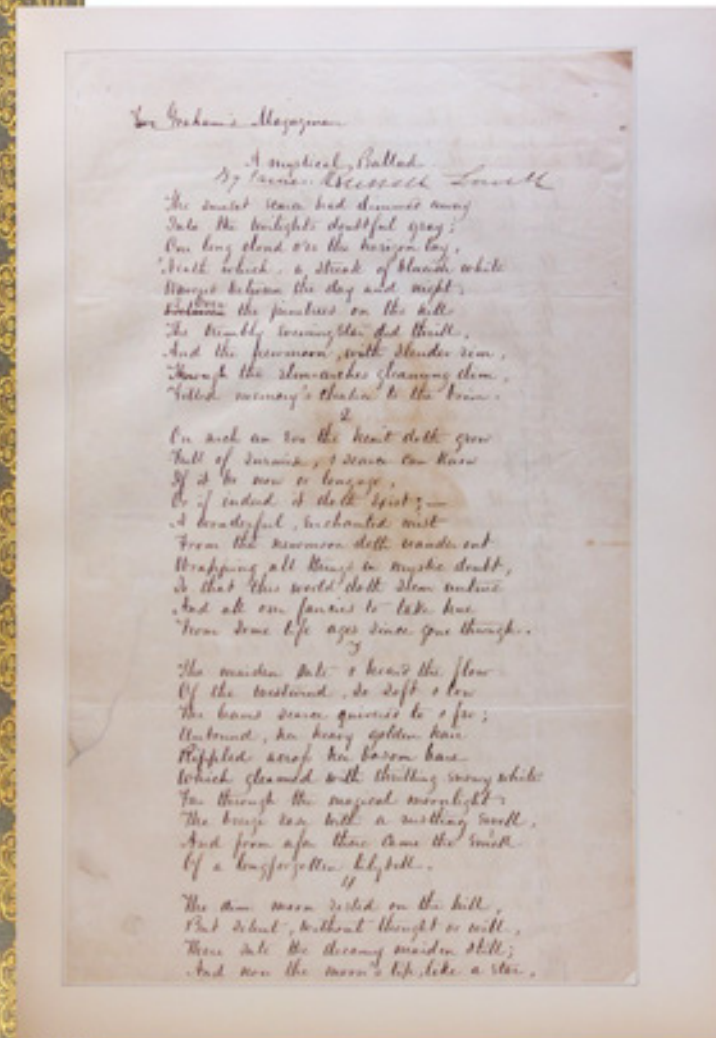 For Graham's Magazine.
A mystical Ballad
By James Russell Lowell
The sunset scarce had dimmed away
Into the twilights doubtful gray;
One long cloud o'er the horizon lay,
'Neath which, a streak of bluish white
Wavered between the day and night;
Over the pinetrees on the hill
The trembly eveningstar did thrill,
And the newmoon, with slender rim,
Through the elm-arches gleaming dim,
Filled memory's chalice to the brim.
2
On such an eve the heart doth grow
Full of surmise, & scarce can know
If it be now or longago,
Or if indeed it doth exist;—
A wonderful, enchanted mist
From the newmoon doth wander out
Wrapping all things in mystic doubt,
So that this world doth seem untrue
And all our fancies to take hue
From some life ages since gone through.
3
The maiden sate & heard the flow
Of the westwind, so soft & low
The leaves scarce quivered to & fro;
Unbound, her heavy golden hair
Rippled across her bosom bare
Which gleamed with thrilling snowy white
Far through the magical moonlight;
The breeze rose with a rustling swell,
And from afar there came the smell
Of a longforgotten lilybell.
4
The dim moon rested on the hill,
But silent, without thought or will,
There sate the dreamy maiden still;
And now the moon's tip, like a star,